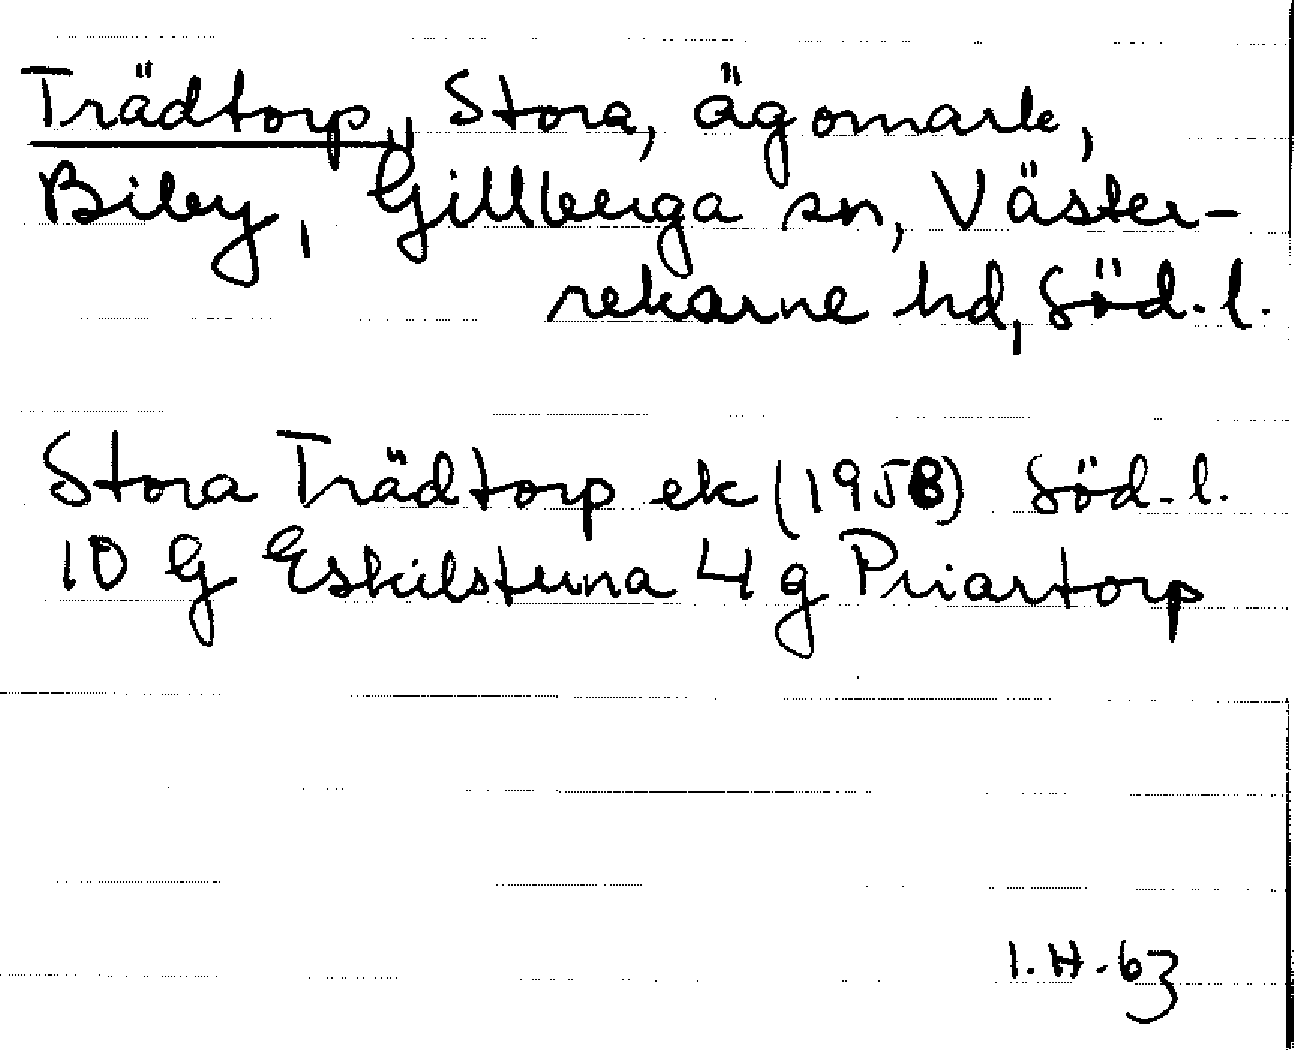 Trädtorp, Stora, ägomark,
Biby, Gillberga sn, Väster-
rekarne hd, Söd. l.
Stora Trädtorp ek (1958) Söd. l.
10 G Eskilstuna 4 g Priartorp
I. H. 63